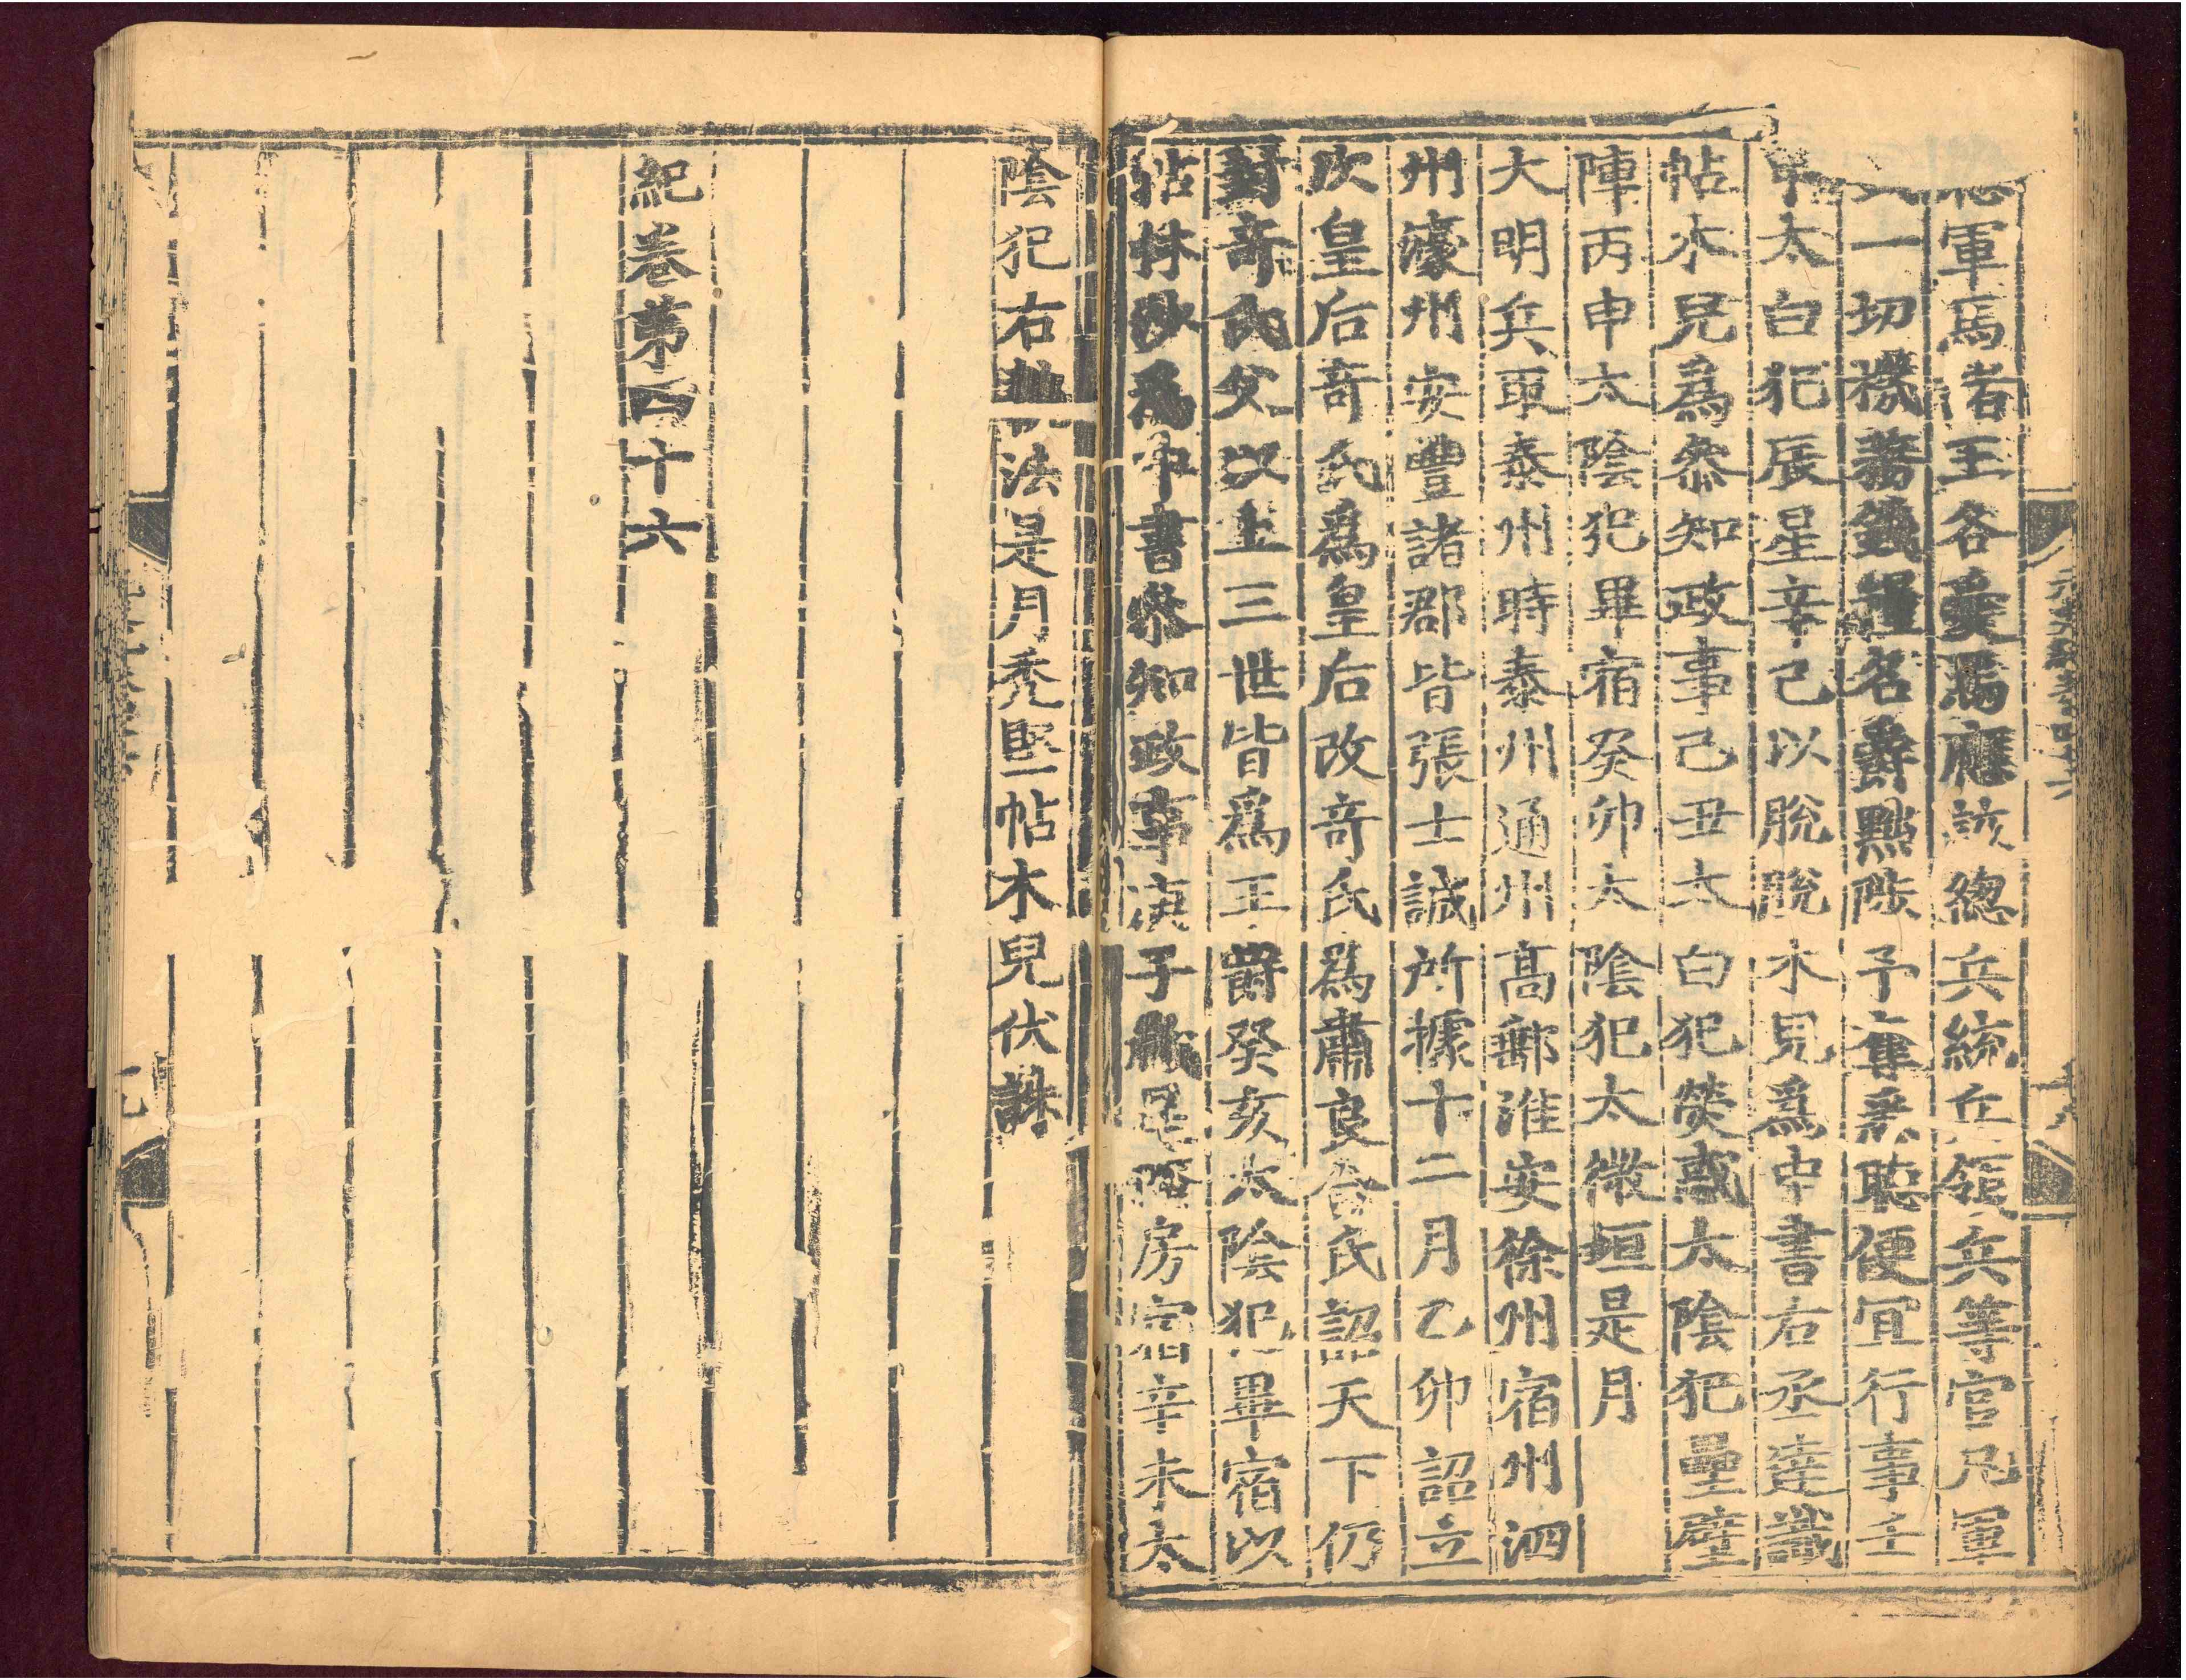 軍馬諸王各愛馬應該緫兵統兵領兵等官凡軍
一切機務錢糧名爵黜陟予奪悉聽便宜行事壬
申太白犯辰星辛巳以脫脫木兒爲中書右丞達識
帖木兒爲叅知政事己丑太白犯熒惑太陰犯壘壁
陣丙申太陰犯畢宿癸卯太陰犯太微垣是月
大明兵取泰州時泰州通州高郵淮安徐州宿州泗
州濠州安豐諸郡皆張士誠所據十二月乙卯詔立
次皇后奇氏爲皇后改奇氏爲肅良合氏詔天下仍
封奇氏父以上三世皆爲王爵癸亥太陰犯畢宿以
帖林沙爲中書叅知政事庚子歲星掩房宿辛未太
元史本紀卷四十六
十八
陰犯右執法是月禿堅帖木兒伏誅
紀卷第四十六